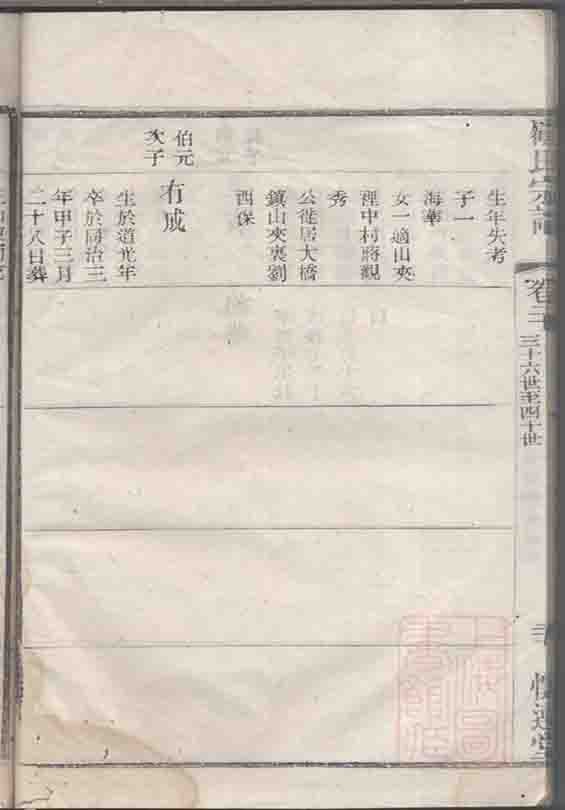 氏宗譜
卷二
三十六世至四十世
生年失考
子一
海華
女一適山夾
裡中村蔣觀
秀
公徙居大橋
鎮山夾裏劉
酉保
伯元
次子
有成
生於道光年
卒於同治三
年甲子三月
二十八日葬
上海圖
書館藏